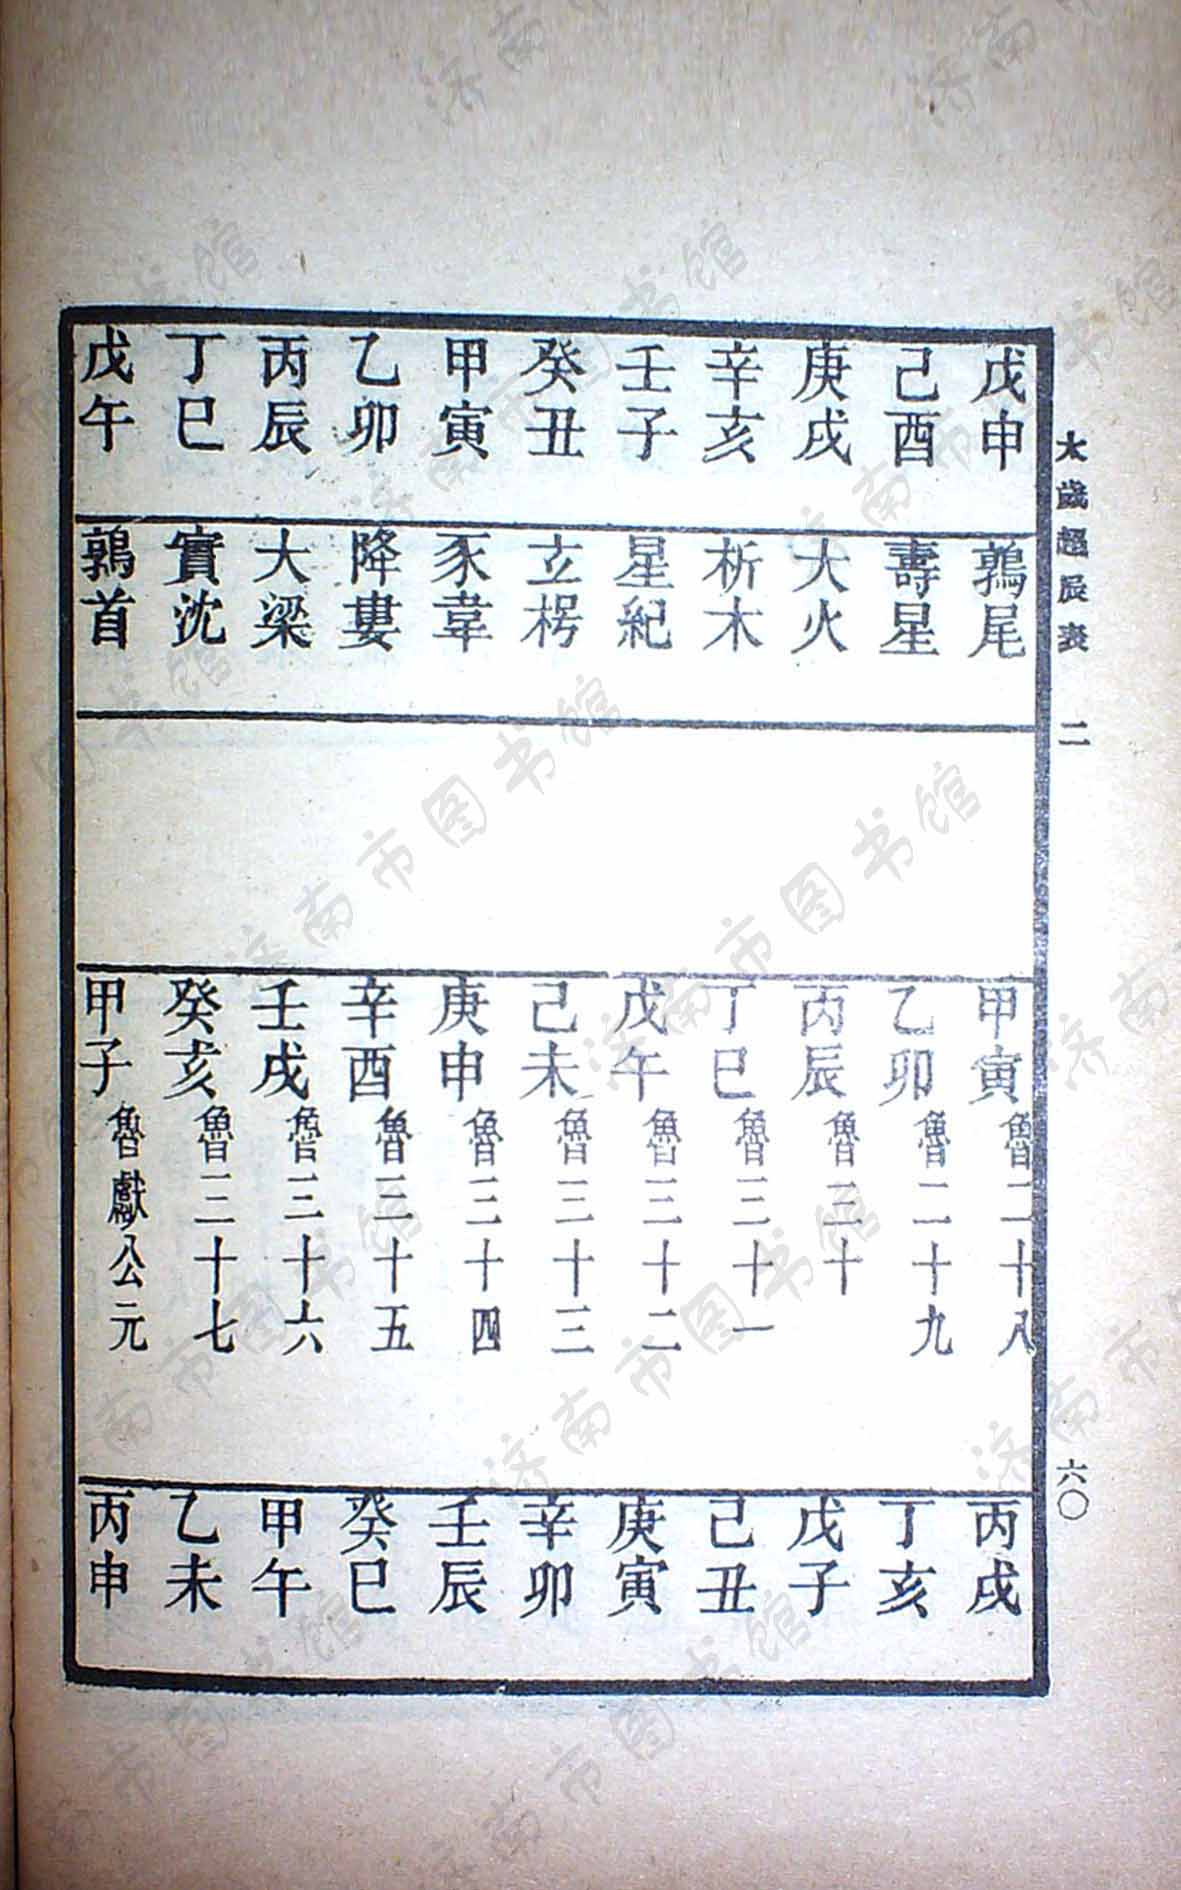 太歲超辰表 二
六〇
戊申 鶉尾 甲寅 魯二十八 丙戌
己酉 壽星 乙卯 魯二十九 丁亥
庚戌 大火 丙辰 魯三十 戊子
辛亥 析木 丁巳 魯三十一 己丑
壬子 星紀 戊午 魯三十二 庚寅
癸丑 玄枵 己未 魯三十三 辛卯
甲寅 豕韋 庚申 魯三十四 壬辰
乙卯 降婁 辛酉 魯三十五 癸巳
丙辰 大梁 壬戌 魯三十六 甲午
丁巳 實沈 癸亥 魯三十七 乙未
戊午 鶉首 甲子 魯獻公元 丙申
济南市图书馆